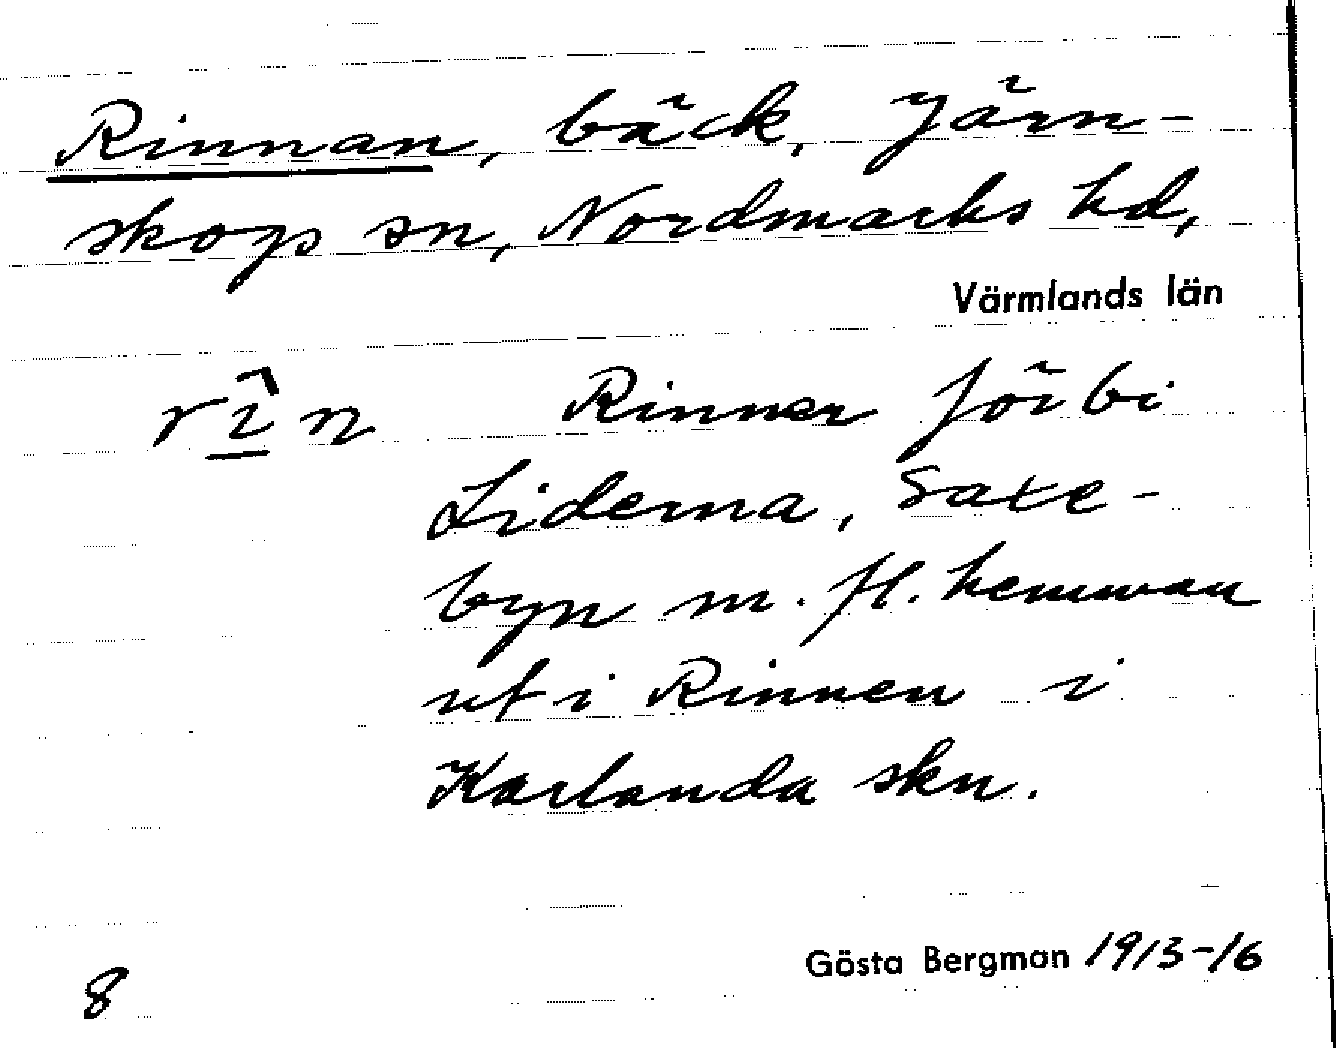 Rinnan, bäck, Järn-
skogs sn, Nordmarks hd,
Värmlands län
rin Rinner förbi
Liderna, Saxe-
byn m. fl. hemman
ut i Rinnen i
Karlanda skn.
Gösta Bergman 1913-16
8